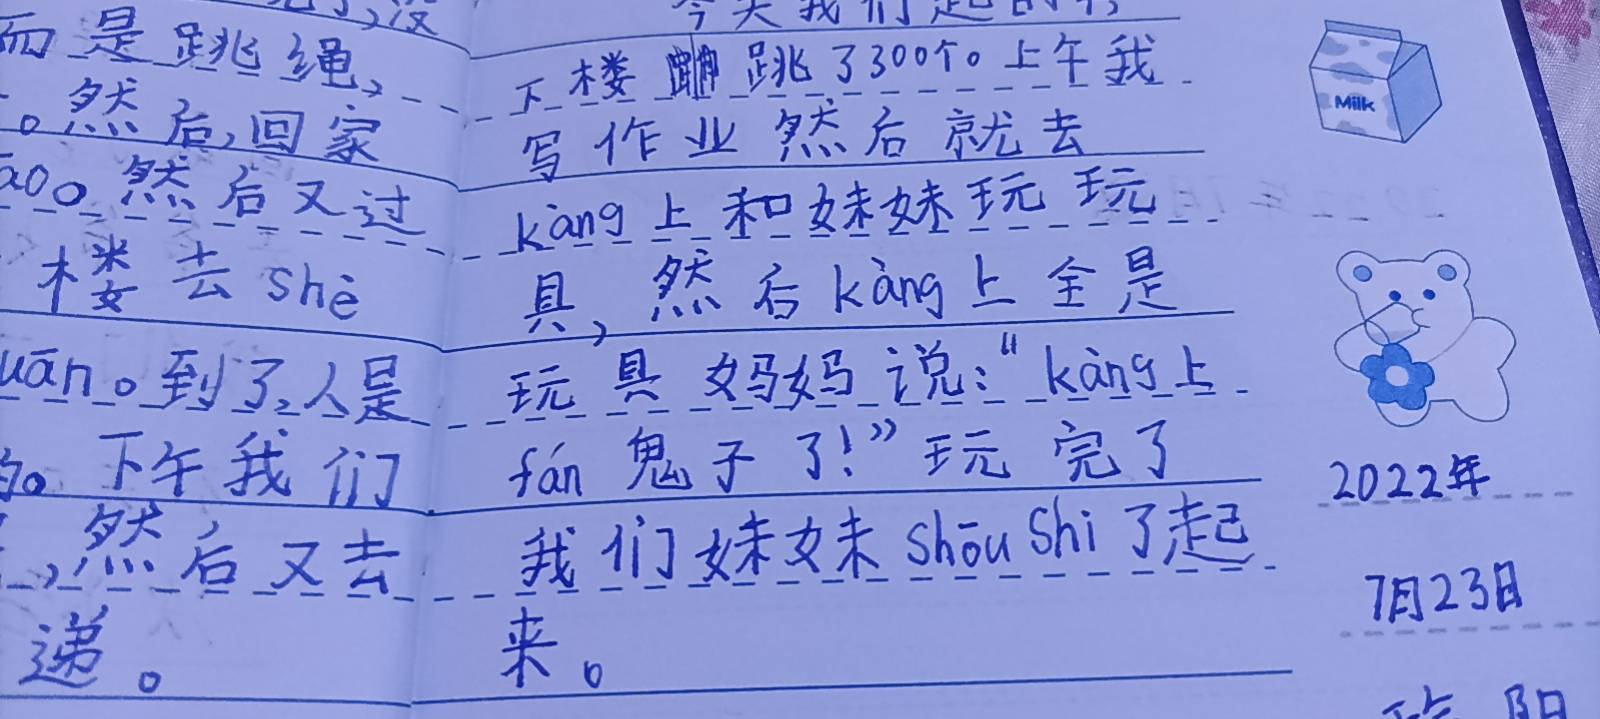 而是跳绳,
。然后,回家
āo。然后又过
楼去shè
uān。到了,人是
的。下午我们
,然后又去
递。
今天我们起的
下楼跳了300个。上午我
写作业然后就去
kàng上和妹妹玩玩
具,然后kàng上全是
玩具妈妈说:“kàng上
fán鬼子了!”玩完了
我们妹妹shōu shi了起
来。
Milk
2022年
7月23日